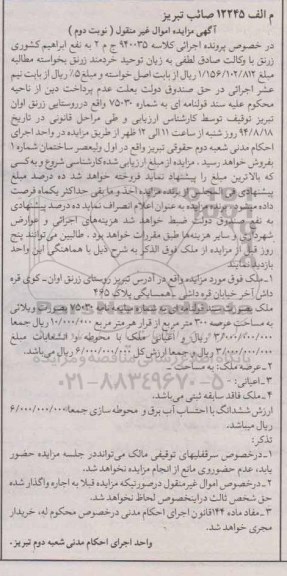 م الف ۱۲۲۴۵ صائب تبریز
آگهی مزایده اموال غیر منقول ( نوبت دوم )
در خصوص پرونده اجرائی کلاسه ۹۴۰۰۳۵ ج م ۲ به نفع ابراهیم کشوری
زرنق با وکالت صادق لطفی به زیان توحید خردمند زرنق بخواسته مطالبه
مبلغ ۱/۱۵۶/۱۰۲/۸۱۲ ریال از بابت اصل خواسته و مبلغ ۵٪ ریال از بابت نیم
عشر اجرائی در حق صندوق دولت بعلت عدم پرداخت دین از ناحیه
محکوم علیه سند قولنامه ای به شماره ۷۵۰۳۰ واقع درروستایی زرنق اوان
تبریز توقیف توسط کارشناس ارزیابی و طی مراحل قانونی در تاریخ
۹۴/۸/۱۸ روز شنبه از ساعت ۱۱ الی ۱۲ ظهر از طریق مزایده در واحد اجرای
احکام مدنی شعبه دوم حقوقی تبریز واقع در اول ولیعصر ساختمان شماره ۱
بفروش خواهد رسید . مزایده از مبلغ ارزیابی شده کارشناسی شروع و به کسی
که بالاترین مبلغ را پیشنهاد نماید فروخته خواهد شد ده درصد مبلغ
پیشنهادی فی المجلس از برنده مزایده اخذ و ما بقی حداکثر یکماه فرصت
داده میشود برنده مزایده به عنوان اعلام انصراف نماید ده درصد پیشنهادی
به نفع صندوق دولت ضبط خواهد شد هزینه‌های اجرائی و عوارض
شهرداری و سایر هزینه‌ها طبق مقررات خواهد بود . طالبین می‌توانند پنج
روز قبل از مزایده از ملک فوق الذکر به شرح ذیل با هماهنگی این واحد
بازدید نمایند
۱_ملک فوق مورد مزایده واقع در آدرس تبریز روستای زرنق اوان_کوی قره
داش آخر خیابان قره داشی_همسایگی پلاک ۴۶۵
ملک بصورت سند قولنامه‌ای به شماره مبایعه نامه ۷۵۰۳۰ بصورت ویلائی
به مساحت عرصه ۳۰۰ متر مربع از قرار هر متر مربع ۱۰/۰۰۰/۰۰۰ ریال جمعا
۳/۰۰۰/۰۰۰/۰۰۰ ریال و اعیانی ملک با محوطه و انشعابات مبلغ
۳/۰۰۰/۰۰۰/۰۰۰ ریال و جمعا ارزش کل ۶/۰۰۰/۰۰۰/۰۰۰ ریال می‌باشد.
۲_عرصه ملک: به مساحت _
۳_اعیانی: _
۴_ملک فاقد سابقه ثبتی می‌باشد.
ارزش ششدانگ با احتساب آب برق و محوطه سازی جمعا ۶/۰۰۰/۰۰۰/۰۰۰
ریال میباشد.
تذکر:
۱_درخصوص سرقفلیهای توقیفی مالک می‌تواند در جلسه مزایده حضور
یابد، عدم حضور وی مانع از انجام مزایده نخواهد شد.
۲_درخصوص اموال غیرمنقول درصورتیکه مزایده قبلا به اجاره واگذار شده
حق شخص ثالث در اینخصوص لحاظ نخواهد شد.
۳_مفاد ماده ۱۴۴ قانون اجرای احکام مدنی درخصوص محکوم له، خریدار
مجری خواهد شد.
واحد اجرای احکام مدنی شعبه دوم تبریز.
۰۲۱-۸۸۳۴۹۶۷۰-۵